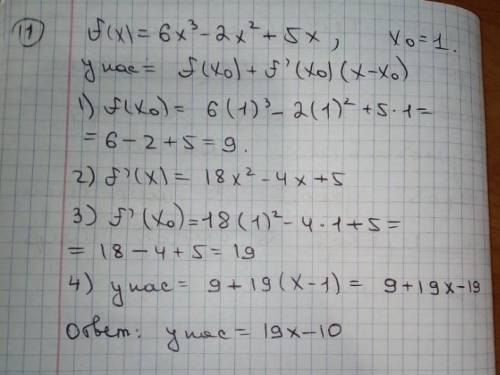 11 f(x) = 6x³ - 2x² + 5x, x₀ = 1.
y кас = f(x₀) + f'(x₀)(x-x₀)
1) f(x₀) = 6(1)³ - 2(1)² + 5·1 =
= 6 - 2 + 5 = 9.
2) f'(x) = 18x² - 4x + 5
3) f'(x₀) = 18(1)² - 4·1 + 5 =
= 18 - 4 + 5 = 19
4) y кас = 9 + 19(x-1) = 9 + 19x - 19
Ответ: y кас = 19x - 10